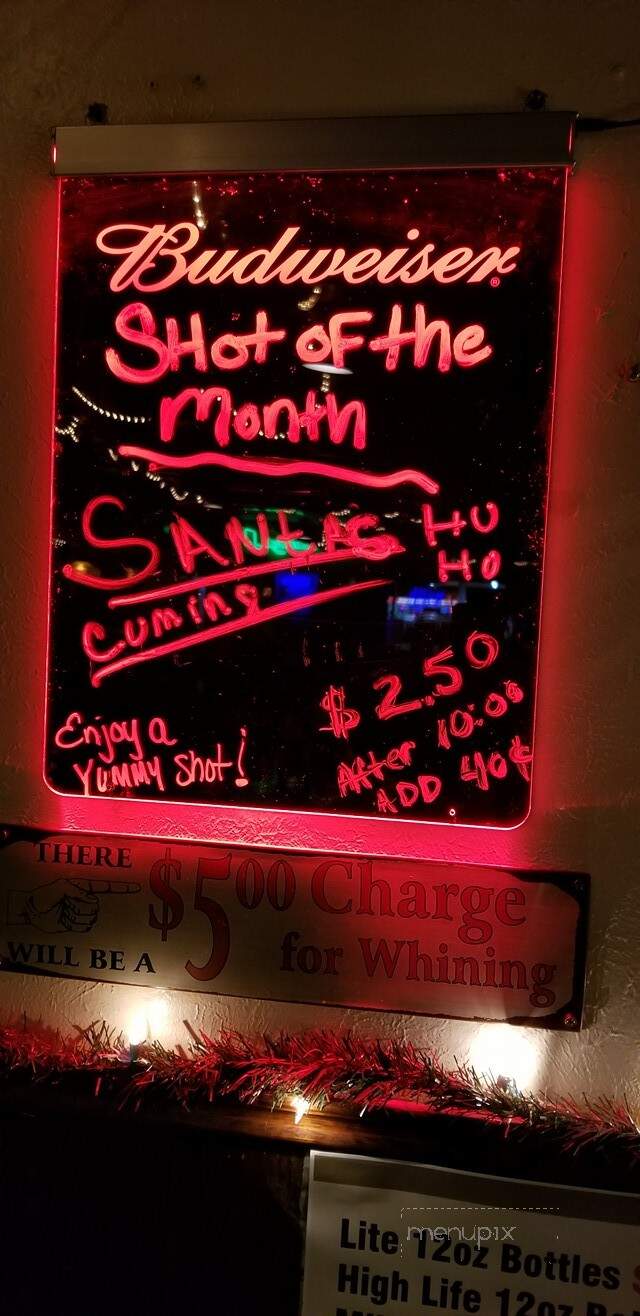 Budweiser
SHot of the
month
SANtAS HO
HO
cuming
$ 2.50
Enjoy a
YUMMY shot!
After 10:00
ADD 40¢
THERE
WILL BE A
$5.00 Charge
for Whining
menupix
Lite 12oz Bottles
High Life 12oz